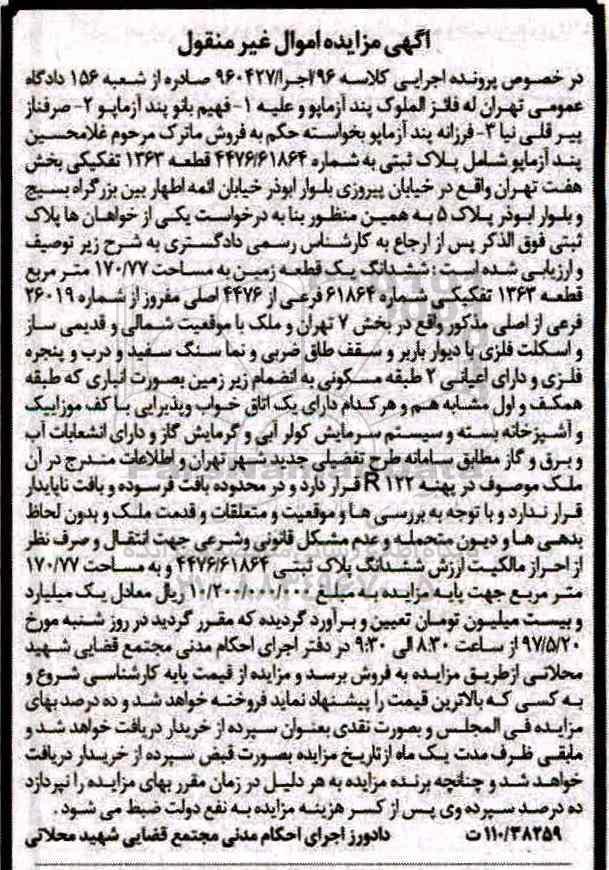 آگهی مزایده اموال غیر منقول
در خصوص پرونده اجرایی کلاسه ۹۶/اجرا/۹۶۰۴۲۷ صادره از شعبه ۱۵۶ دادگاه
عمومی تهران له فائز الملوک پند آزماپو و علیه ۱- فهیم بانو پند آزماپو ۲- صرفناز
پیر قلی نیا ۳- فرزانه پند آزماپو بخواسته حکم به فروش ماترک مرحوم غلامحسین
پند آزماپو شامل پلاک ثبتی به شماره ۴۴۷۶/۶۱۸۶۴ قطعه ۱۳۶۳ تفکیکی بخش
هفت تهران واقع در خیابان پیروزی بلوار ابوذر خیابان ائمه اطهار بین بزرگراه بسیج
و بلوار ابوذر پلاک ۵ به همین منظور بنا به درخواست یکی از خواهان ها پلاک
ثبتی فوق الذکر پس از ارجاع به کارشناس رسمی دادگستری به شرح زیر توصیف
و ارزیابی شده است : ششدانگ یک قطعه زمین به مساحت ۱۷۰/۷۷ متر مربع
قطعه ۱۳۶۳ تفکیکی شماره ۶۱۸۶۴ فرعی از ۴۴۷۶ اصلی مفروز از شماره ۲۶۰۱۹
فرعی از اصلی مذکور واقع در بخش ۷ تهران و ملک با موقعیت شمالی و قدیمی ساز
و اسکلت فلزی با دیوار باربر و سقف طاق ضربی و نما سنگ سفید و درب و پنجره
فلزی و دارای اعیانی ۲ طبقه مسکونی به انضمام زیر زمین بصورت انباری که طبقه
همکف و اول مشابه هم و هر کدام دارای یک اتاق خواب وپذیرایی با کف موزاییک
و آشپزخانه بسته و سیستم سرمایش کولر آبی و گرمایش گاز و دارای انشعابات آب
و برق و گاز مطابق سامانه طرح تفضلی جدید شهر تهران و اطلاعات مندرج در آن
ملک موصوف در پهنه R ۱۲۲ قرار دارد و در محدوده بافت فرسوده و بافت ناپایدار
قرار ندارد و با توجه به بررسی ها و موقعیت و متعلقات و قدمت ملک و بدون لحاظ
بدهی ها و دیون متحمله و عدم مشکل قانونی وشرعی جهت انتقال و صرف نظر
از احراز مالکیت ارزش ششدانگ پلاک ثبتی ۴۴۷۶/۶۱۸۶۴ و به مساحت ۱۷۰/۷۷
متر مربع جهت پایه مزایده به مبلغ ۱۰/۲۰۰/۰۰۰/۰۰۰ ریال معادل یک میلیارد
و بیست میلیون تومان تعیین و برآورد گردیده که مقرر گردید در روز شنبه مورخ
۹۷/۵/۲۰ از ساعت ۸:۳۰ الی ۹:۳۰ در دفتر اجرای احکام مدنی مجتمع قضایی شهید
محلاتی ازطریق مزایده به فروش برسد و مزایده از قیمت پایه کارشناسی شروع و
به کسی که بالاترین قیمت را پیشنهاد نماید فروخته خواهد شد و ده درصد بهای
مزایده فی المجلس و بصورت نقدی بعنوان سپرده از خریدار دریافت خواهد شد و
مابقی ظرف مدت یک ماه ازتاریخ مزایده بصورت قبض سپرده از خریدار دریافت
خواهد شد و چنانچه برنده مزایده به هر دلیل در زمان مقرر بهای مزایده را نپردازد
ده درصد سپرده وی پس از کسر هزینه مزایده به نفع دولت ضبط می شود .
۱۱۰/۳۸۲۵۹ت دادورز اجرای احکام مدنی مجتمع قضایی شهید محلاتی